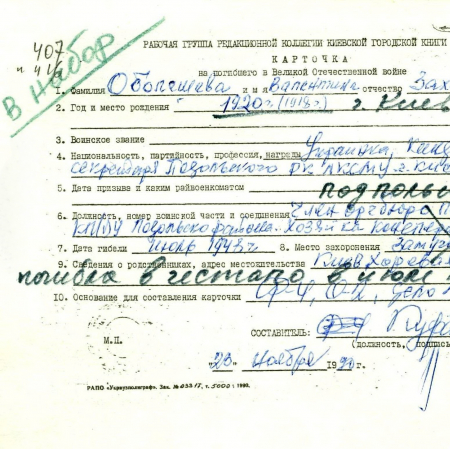 407
и 416
В набор
РАБОЧАЯ ГРУППА РЕДАКЦИОННОЙ КОЛЛЕГИИ КИЕВСКОЙ ГОРОДСКОЙ КНИГИ
КАРТОЧКА
на погибшего в Великой Отечественной войне
1. Фамилия Оболешева имя Валентина отчество Зах
2. Год и место рождения 1920г. (1918г) г. Киев
3. Воинское звание
4. Национальность, партийность, профессия, награды Украинка
секретарь Подольского РК ЛКСМУ г. Киев
5. Дата призыва и каким райвоенкоматом подполь
6. Должность, номер воинской части и соединения Член оргбюро
КП/б/У Подольского района. Хозяйка
7. Дата гибели Июль 1943г 8. Место захоронения
9. Сведения о родственниках, адрес местожительства Киев Хоревая
погибла в гестапо в июле
10. Основание для составления карточки
СОСТАВИТЕЛЬ:
(должность, подпись
М.П.
"23" ноября 1990
РАПО «Укрвузполиграф». Зак. № т. 5000: 1990.